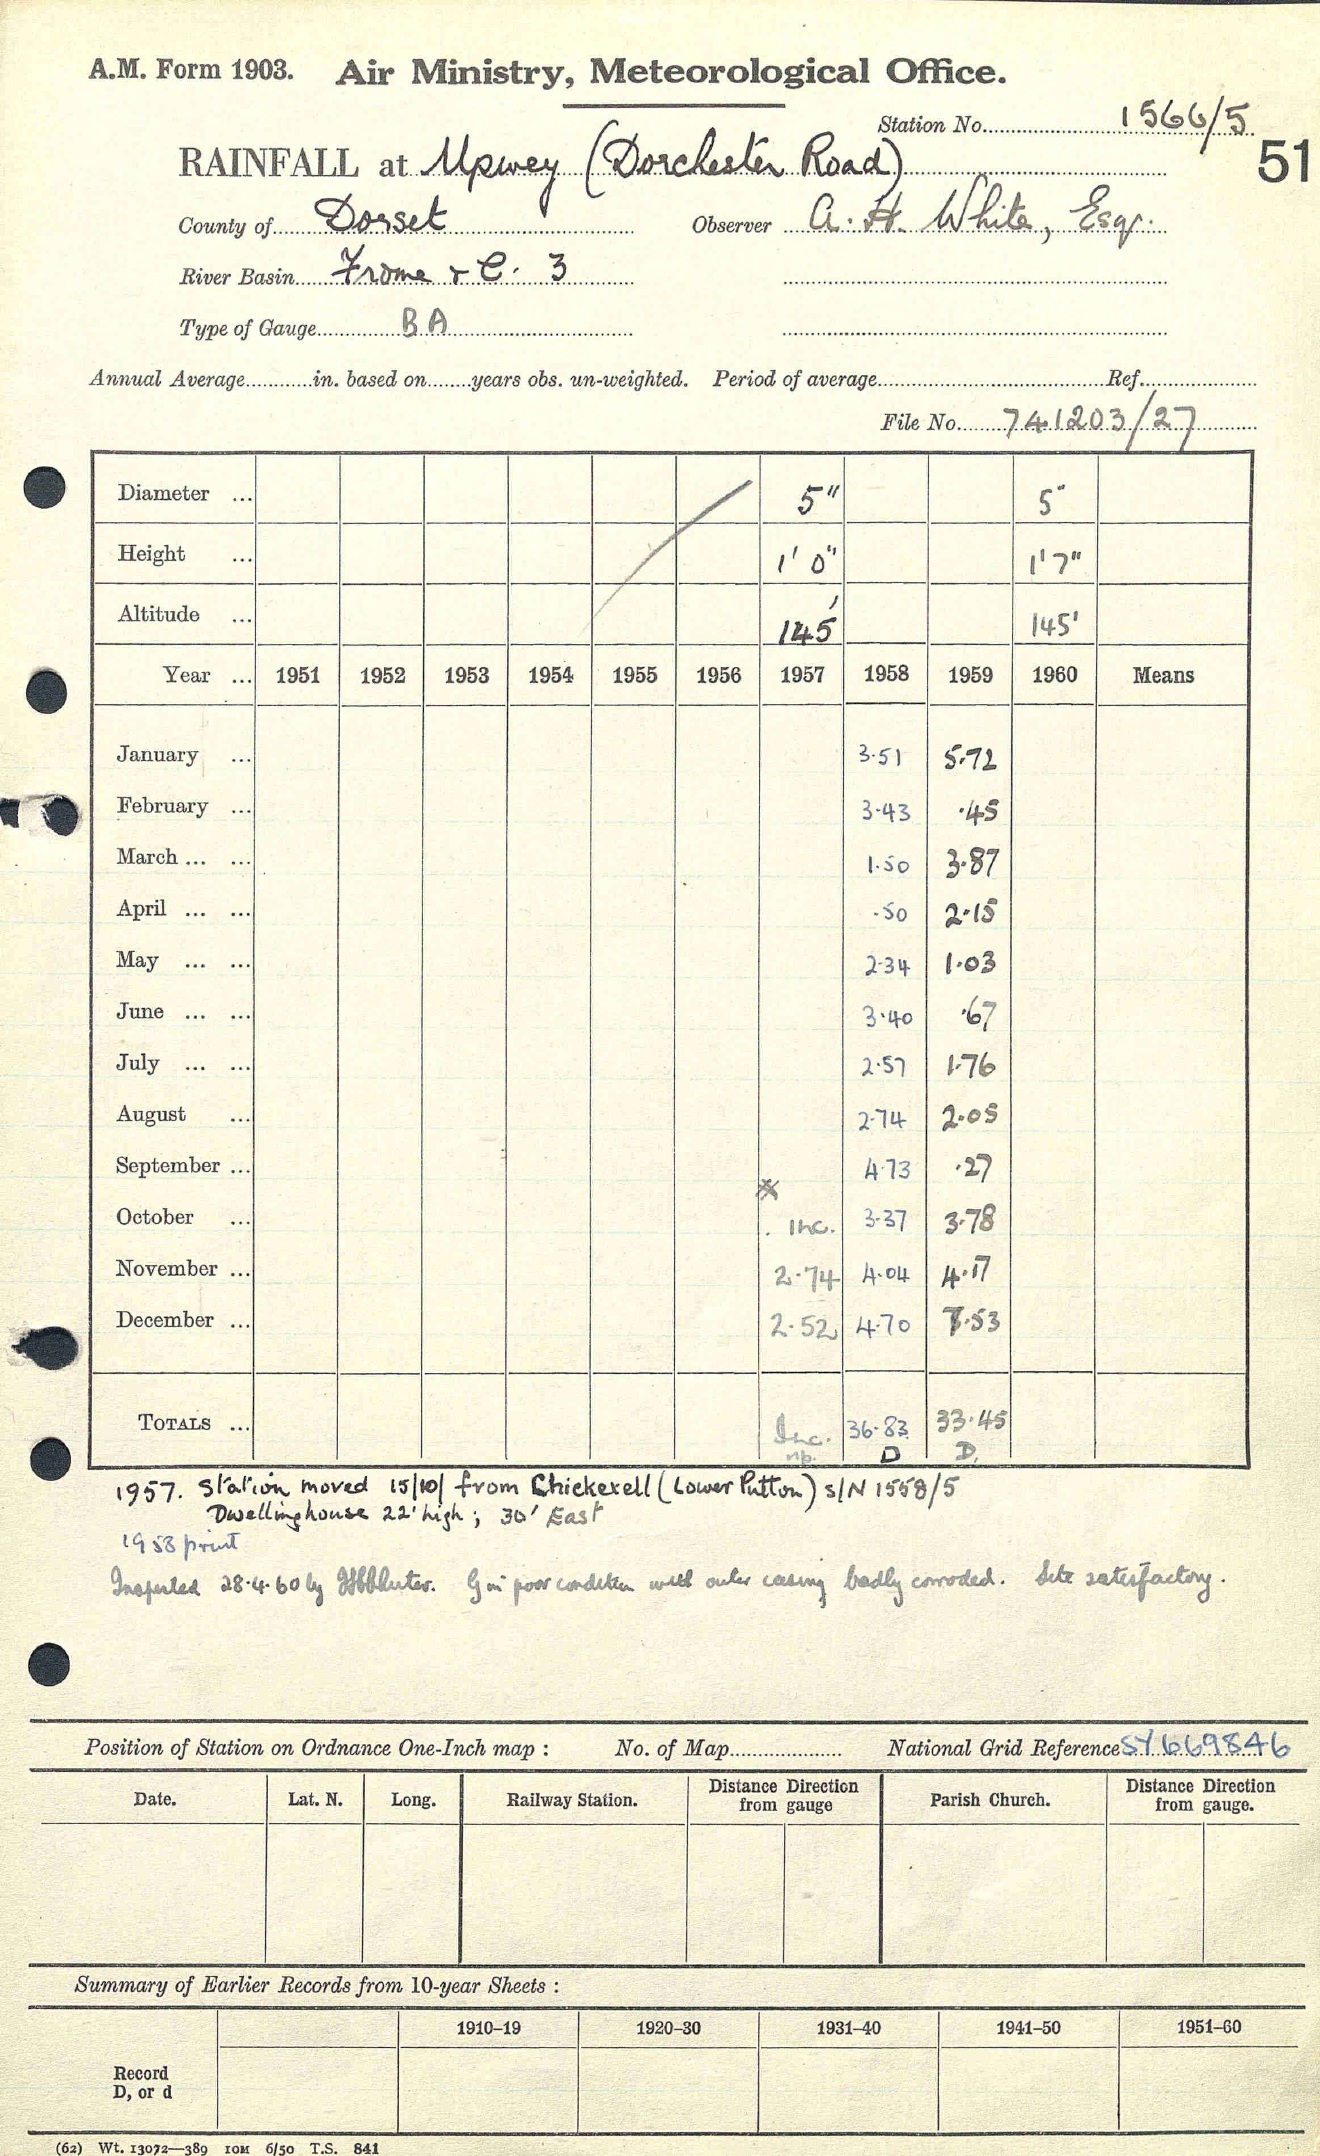 A.M. Form 1903. Air Ministry, Meteorological Office.
Station No. 1566/5
51
RAINFALL at Upwey (Dorchester Road)
County of Dorset Observer A. H. White, Esqr.
River Basin Frome & C. 3
Type of Gauge BA
Annual Average in. based on years obs. un-weighted. Period of average Ref.
File No. 741203/27
Diameter ... 5" 5"
Height ... 1' 0" 1' 7"
Altitude ... 145' 145'
Year ... 1951 1952 1953 1954 1955 1956 1957 1958 1959 1960 Means
January ... 3.51 5.72
February ... 3.43 .45
March ... ... 1.50 3.87
April ... ... .50 2.15
May ... ... 2.34 1.03
June ... ... 3.40 .67
July ... ... 2.57 1.76
August ... 2.74 2.05
September ... 4.73 .27
October ... Inc. 3.37 3.78
November ... 2.74 4.04 4.17
December ... 2.52 4.70 7.53
TOTALS ... Inc. 36.83 33.45
np. D D.
1957. Station moved 15/10/ from Chickerell (Lower Putton) S/N 1558/5
Dwellinghouse 22' high; 30' East
1958 print
Inspected 28.4.60 by G in poor condition with outer casing badly corroded. Site satisfactory.
Position of Station on Ordnance One-Inch map : No. of Map National Grid Reference SY669846
Date. Lat. N. Long. Railway Station. Distance Direction from gauge Parish Church. Distance Direction from gauge.
Summary of Earlier Records from 10-year Sheets :
1910-19 1920-30 1931-40 1941-50 1951-60
Record
D, or d
(62) Wt. 13072—389 10M 6/50 T.S. 841